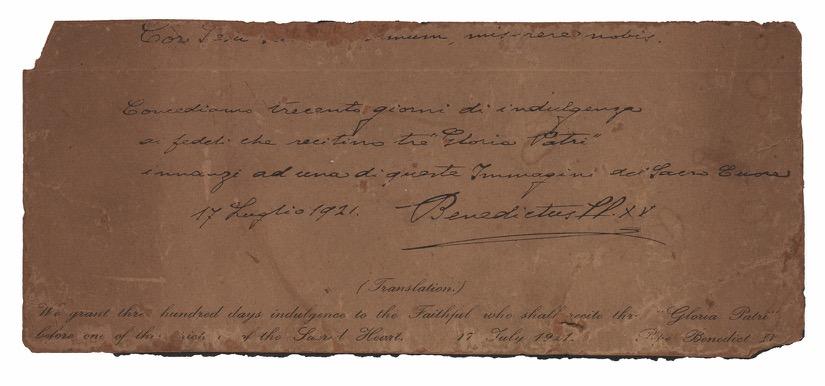 Cor Jesu miserere nobis.
Concediamo trecento giorni di indulgenza
ai fedeli che recitino tre "Gloria Patri"
innanzi ad una di queste Immagini del Sacro Cuore
17 Luglio 1921. Benedictus PP. XV
(Translation.)
We grant three hundred days indulgence to the Faithful who shall recite thr "Gloria Patri"
before one of the of the Sacred Heart. 17 July 1921. Pope Benedict XV